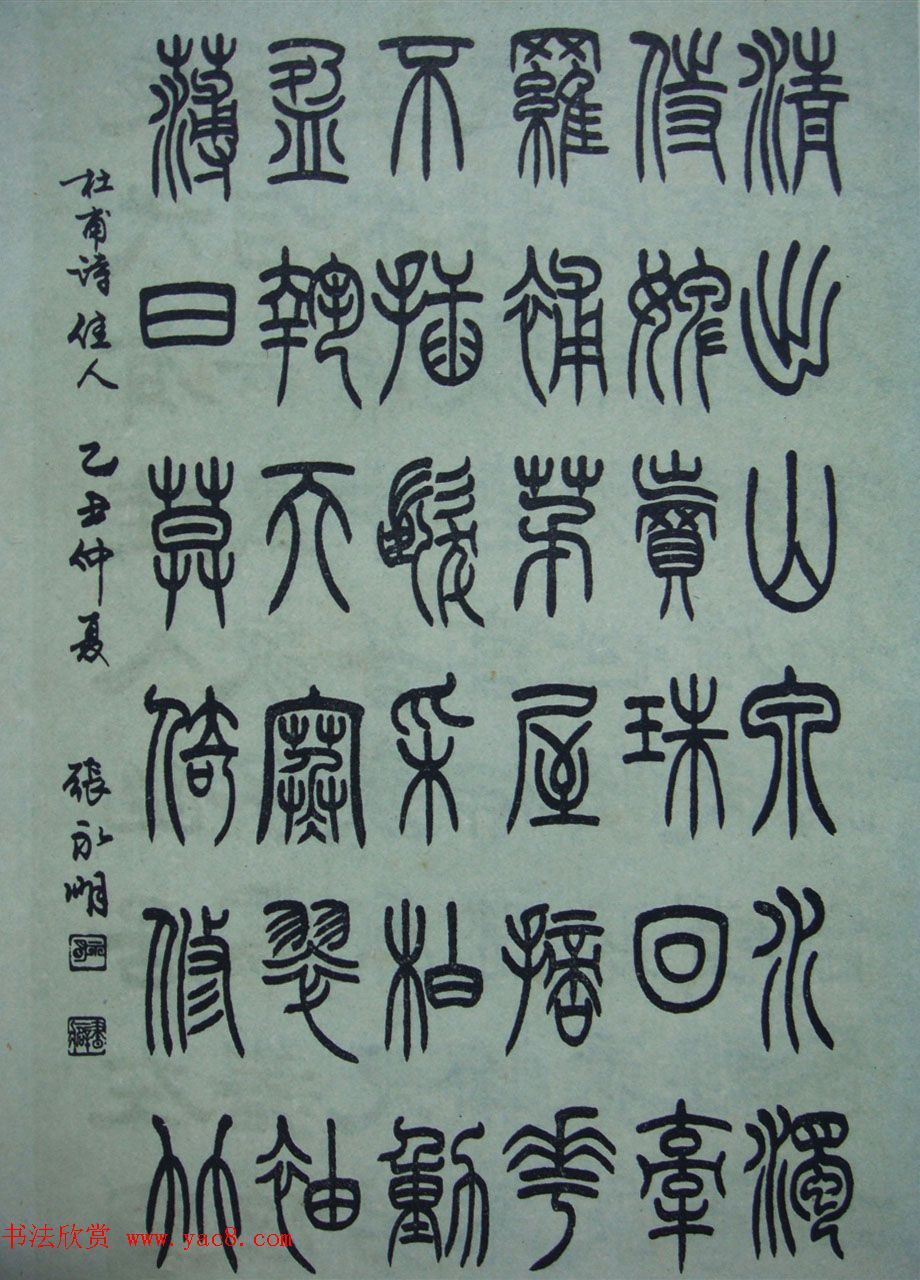 清出山泉水濁
侍婢賣珠回牽
羅補茅屋摘花
不插髮采柏動
盈掬天寒翠袖
薄日莫倚修竹
杜甫诗佳人 乙丑仲夏 張永明
书法欣赏 www.yac8.com